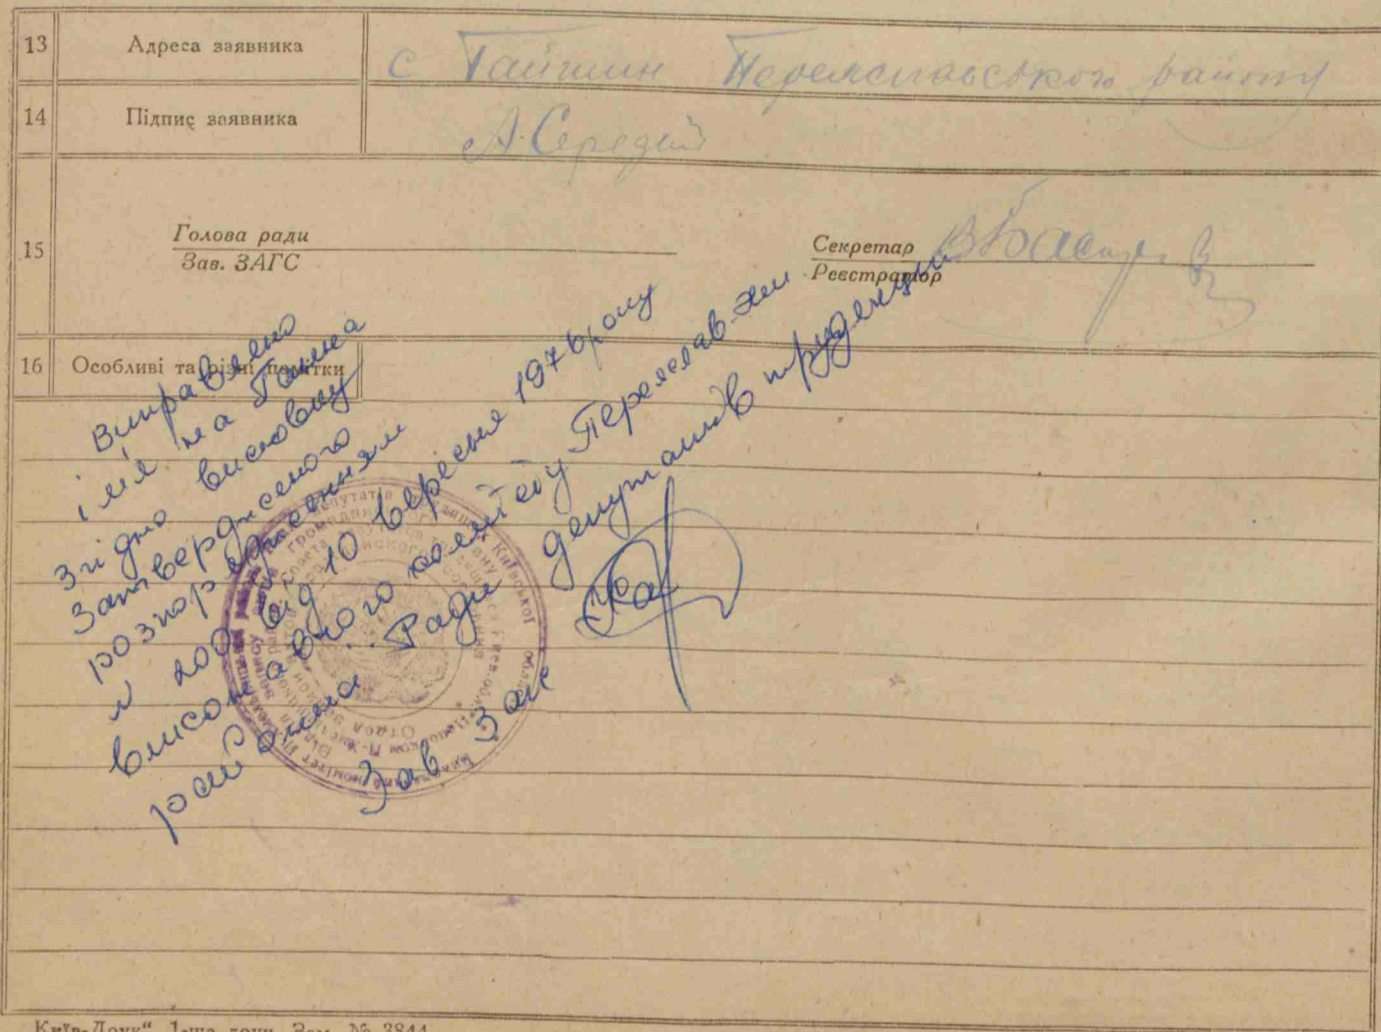 13 Адреса заявника с Гайшин Переяславського району
14 Підпис заявника А. Середей
15 Голова ради Секретар
Зав. ЗАГС Реєстратор
16 Особливі та різні помітки
Виправлено
імя на Ганна
згідно висновку
затвердженого
розпорядженням
№ 200 від 10 вересня 1976 року
виконавчого комітету Переяслав-Хм
районної Ради депутатів трудящих
Зав Загс
Київ-Друк" 1-ша друк. Зам. № 3844